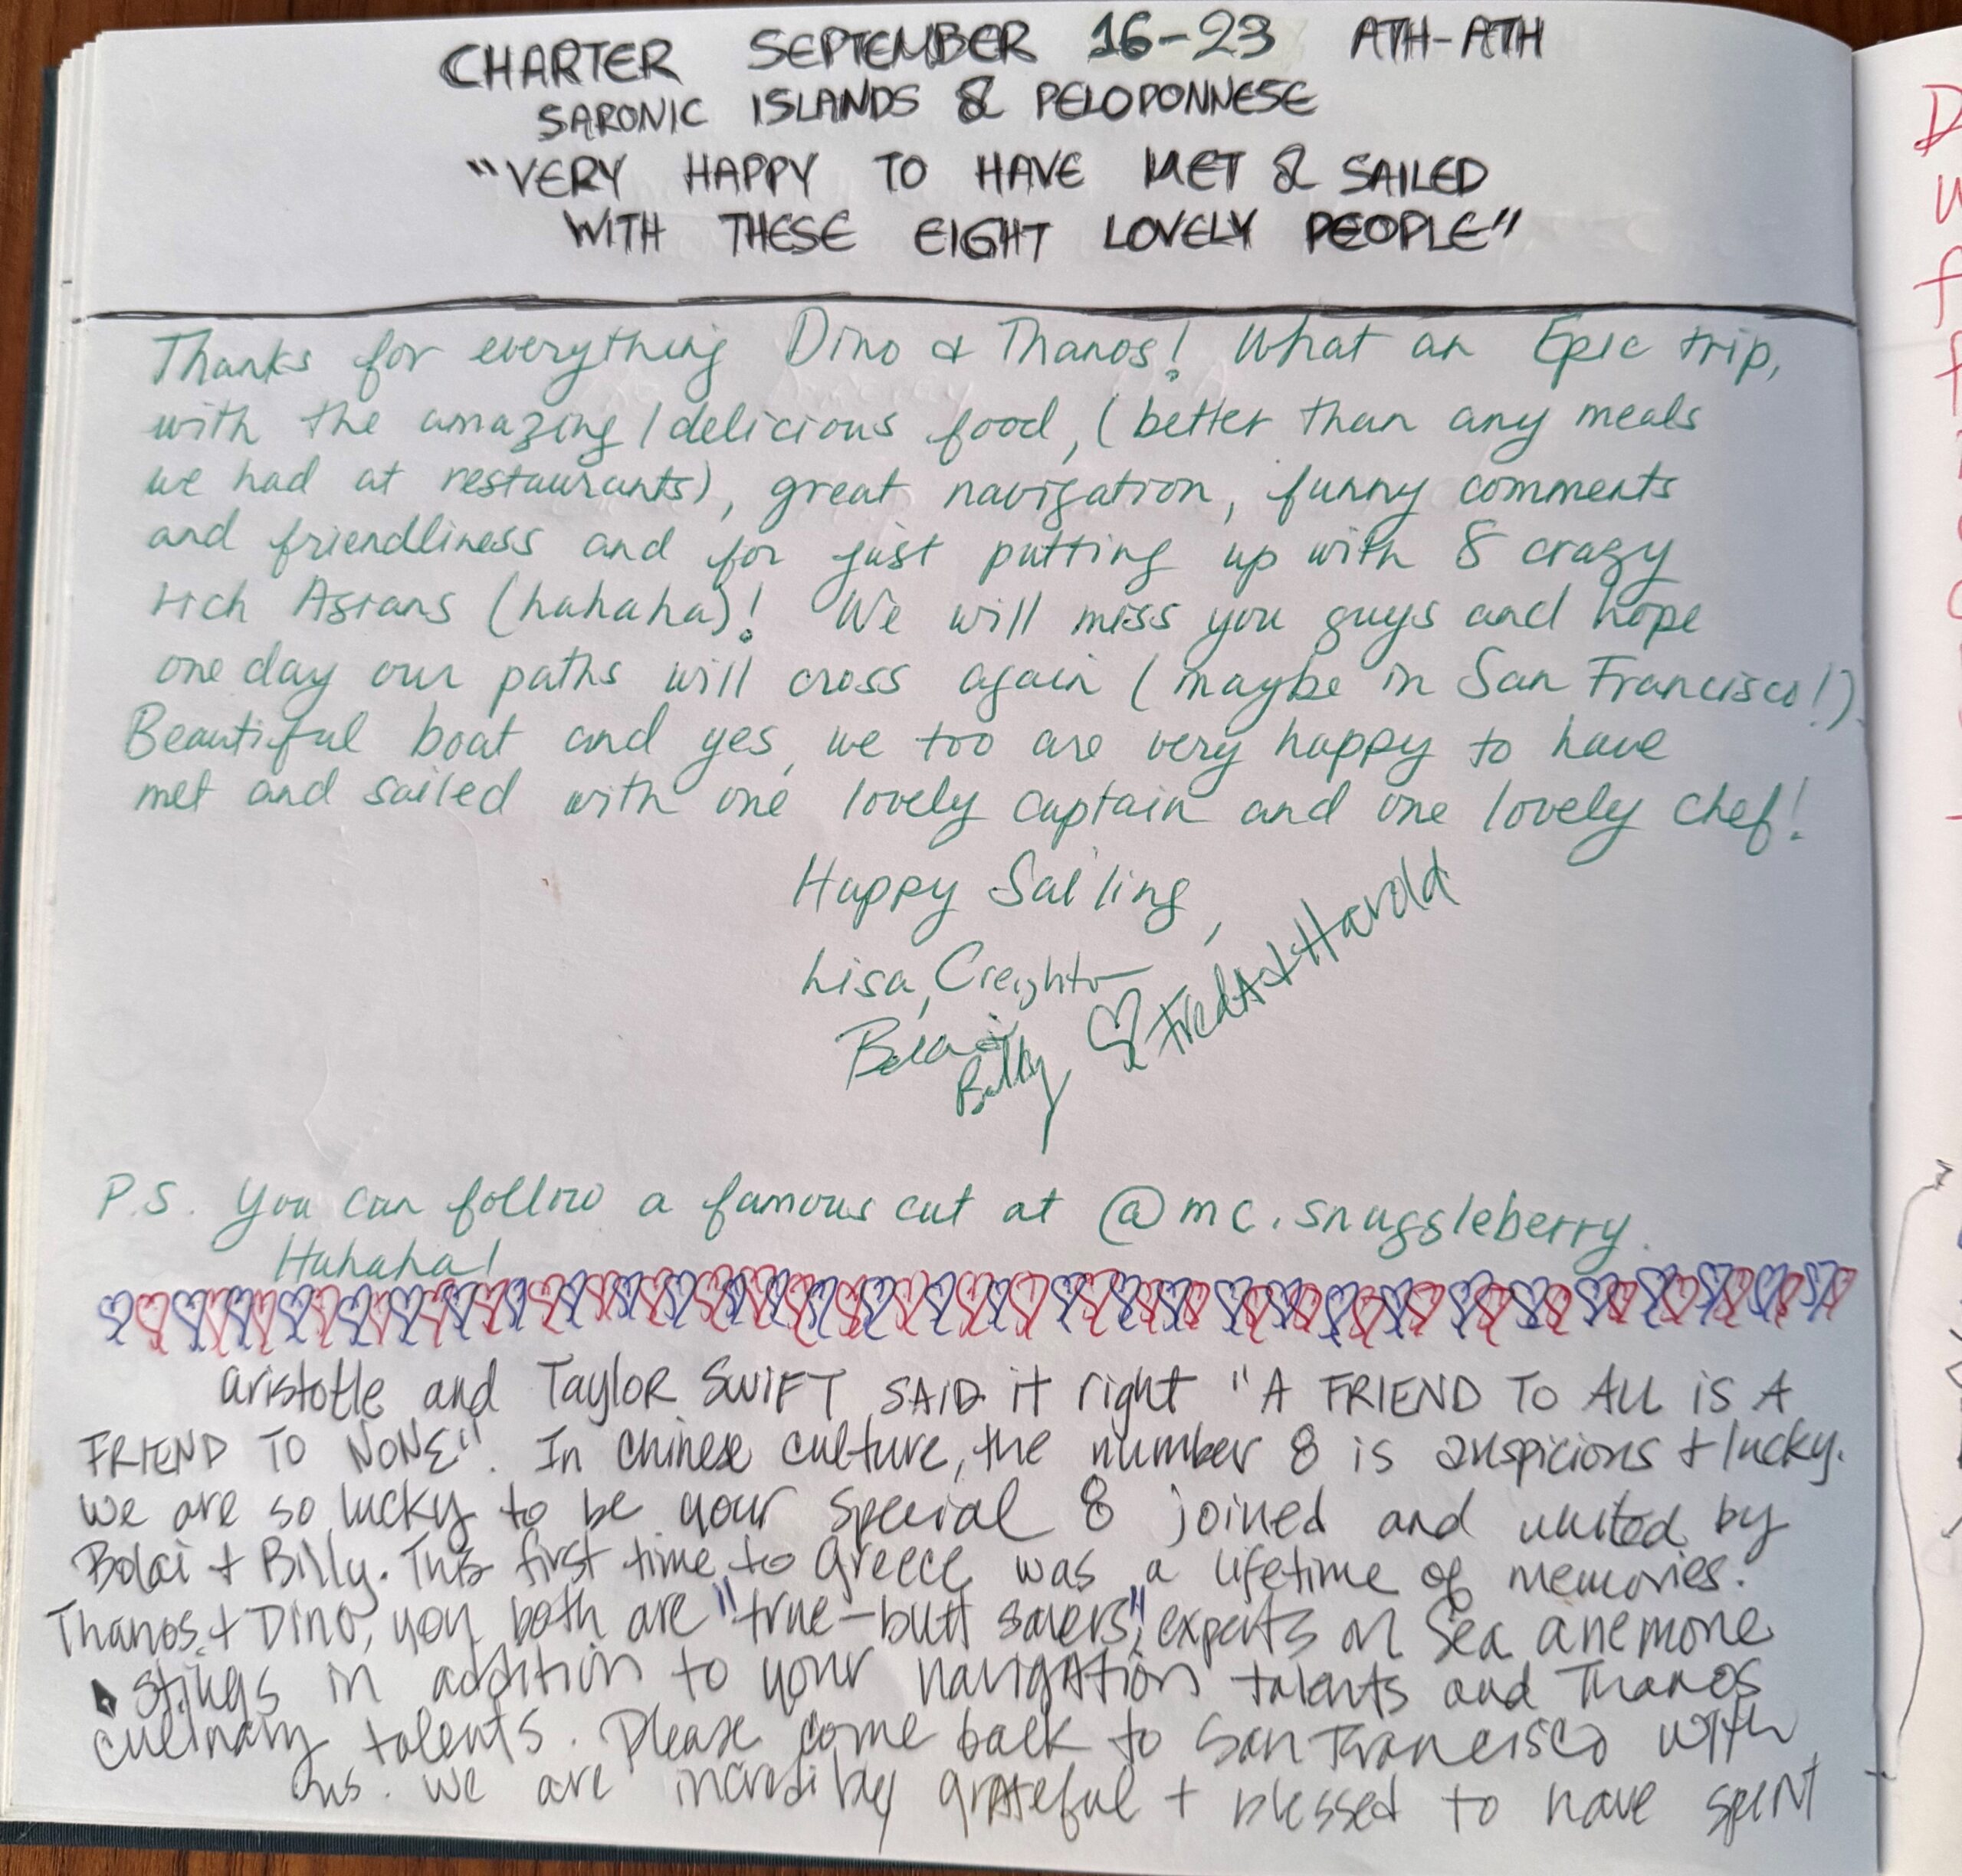 CHARTER SEPTEMBER 16-23 ATH-ATH
SARONIC ISLANDS & PELOPONNESE
"VERY HAPPY TO HAVE MET & SAILED
WITH THESE EIGHT LOVELY PEOPLE"
Thanks for everything Dino & Thanos! What an Epic trip,
with the amazing/delicious food, (better than any meals
we had at restaurants), great navigation, funny comments
and friendliness and for just putting up with 8 crazy
rich Asians (hahaha)! We will miss you guys and hope
one day our paths will cross again (maybe in San Francisco!).
Beautiful boat and yes, we too are very happy to have
met and sailed with one lovely captain and one lovely chef!
Happy Sailing,
Lisa, Creighton
Billy
Fred + Harold
P.S. You can follow a famous cat at @mc.snuggleberry.
Hahaha!
aristotle and Taylor SWIFT SAID it right "A FRIEND TO ALL is A
FRIEND TO NONE". In Chinese culture, the number 8 is auspicious + lucky.
We are so lucky to be your special 8 joined and united by
+ Billy. This first time to Greece was a lifetime of memories.
Thanos + Dino, you both are "true-butt savers", experts on Sea anemone
stings in addition to your navigation talents and Thanos
culinary talents. Please come back to San Francisco with
us. We are incredibly grateful + blessed to have spent